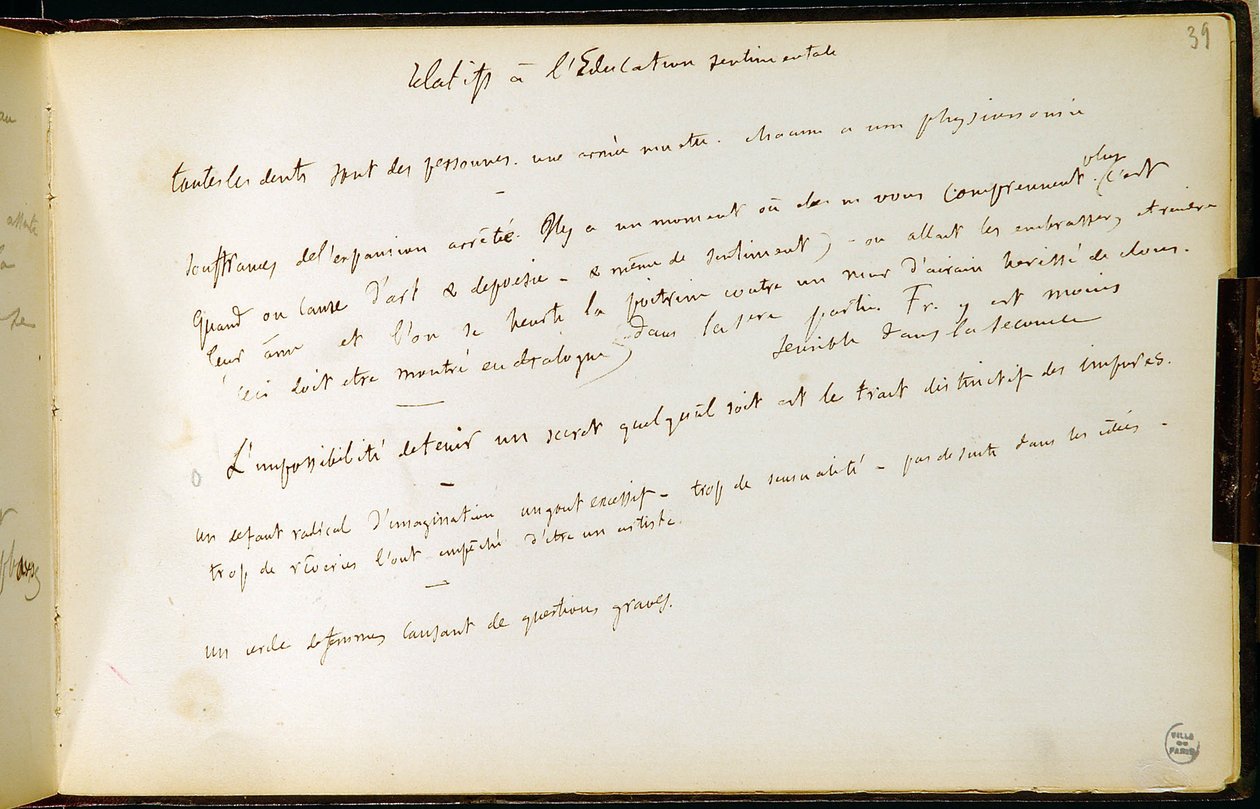 39
Relatifs à l'Education sentimentale
toutes les dents sont des personnes. une armée muette. chacune a une physionomie
souffrances de l'expansion arrêtée. Il y a un moment où elles ne vous comprennent plus (c'est
quand on cause d'art & de poésie - & même de sentiment) - on allait les embrasser, étreindre
leur âme et l'on se heurte la poitrine contre un mur d'airain hérissé de clous.
ceci doit être montré en dialogue, dans la 1ère partie. Fr. y est moins
sensible dans la seconde
L'impossibilité de tenir un secret quel qu'il soit est le trait distinctif des impures.
un défaut radical d'imagination un gout excessif - trop de sensualité - pas de suite dans les idées -
trop de rêveries l'ont empêché d'être un artiste.
un cercle de femmes causant de questions graves.
VILLE
DE
PARIS